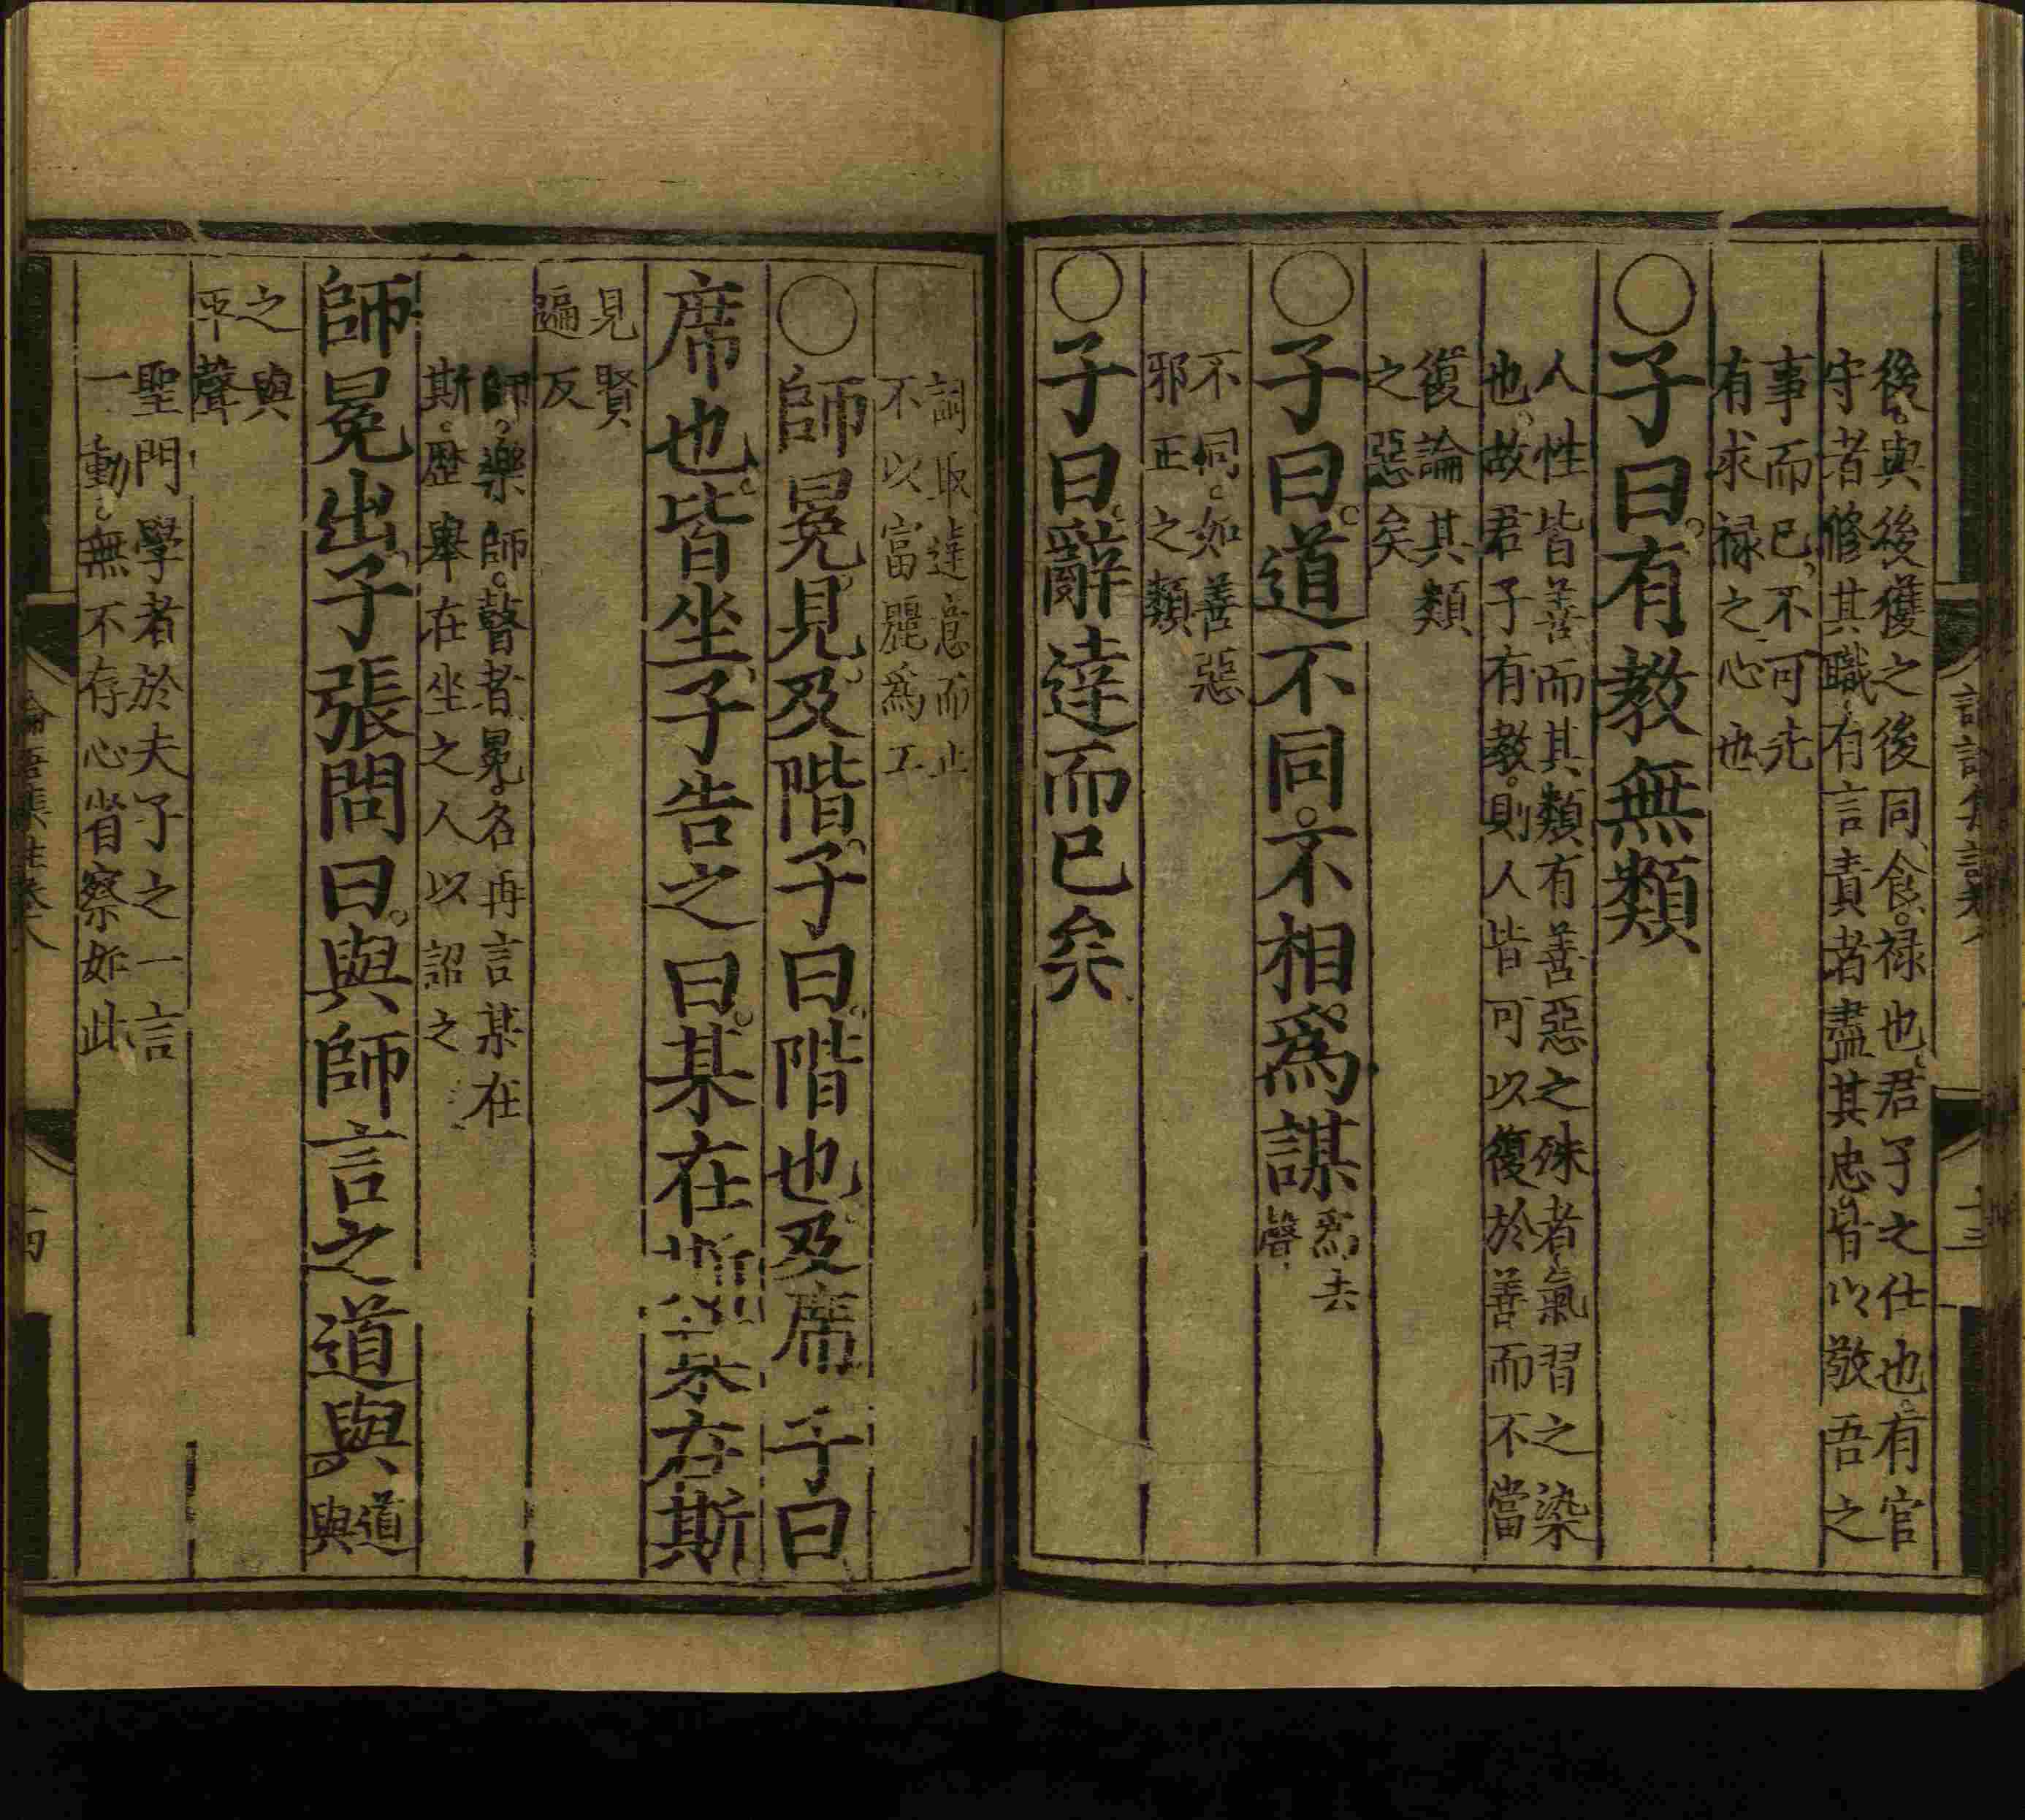 後與後獲之後同食禄也君子之仕也有官
守者修其職有言責者盡其忠皆以敬吾之
事而已不可先
有求禄之心也
○子曰有教無類
人性皆善而其類有善惡之殊者氣習之染
也故君子有教則人皆可以復於善而不當
復論其類
之惡矣
○子曰道不同不相爲謀
爲去
聲
不同如善惡
邪正之類
○子曰辭達而已矣
詞取達意而止
不以富麗爲工
○師冕見及階子曰階也及席子曰
席也皆坐子告之曰某在斯某在斯
見賢
遍反
師樂師瞽者冕名再言某在
斯歷舉在坐之人以詔之
師冕出子張問曰與師言之道與
道
與
之與
平聲
聖門學者於夫子之一言
一動無不存心省察如此
論語集註卷八